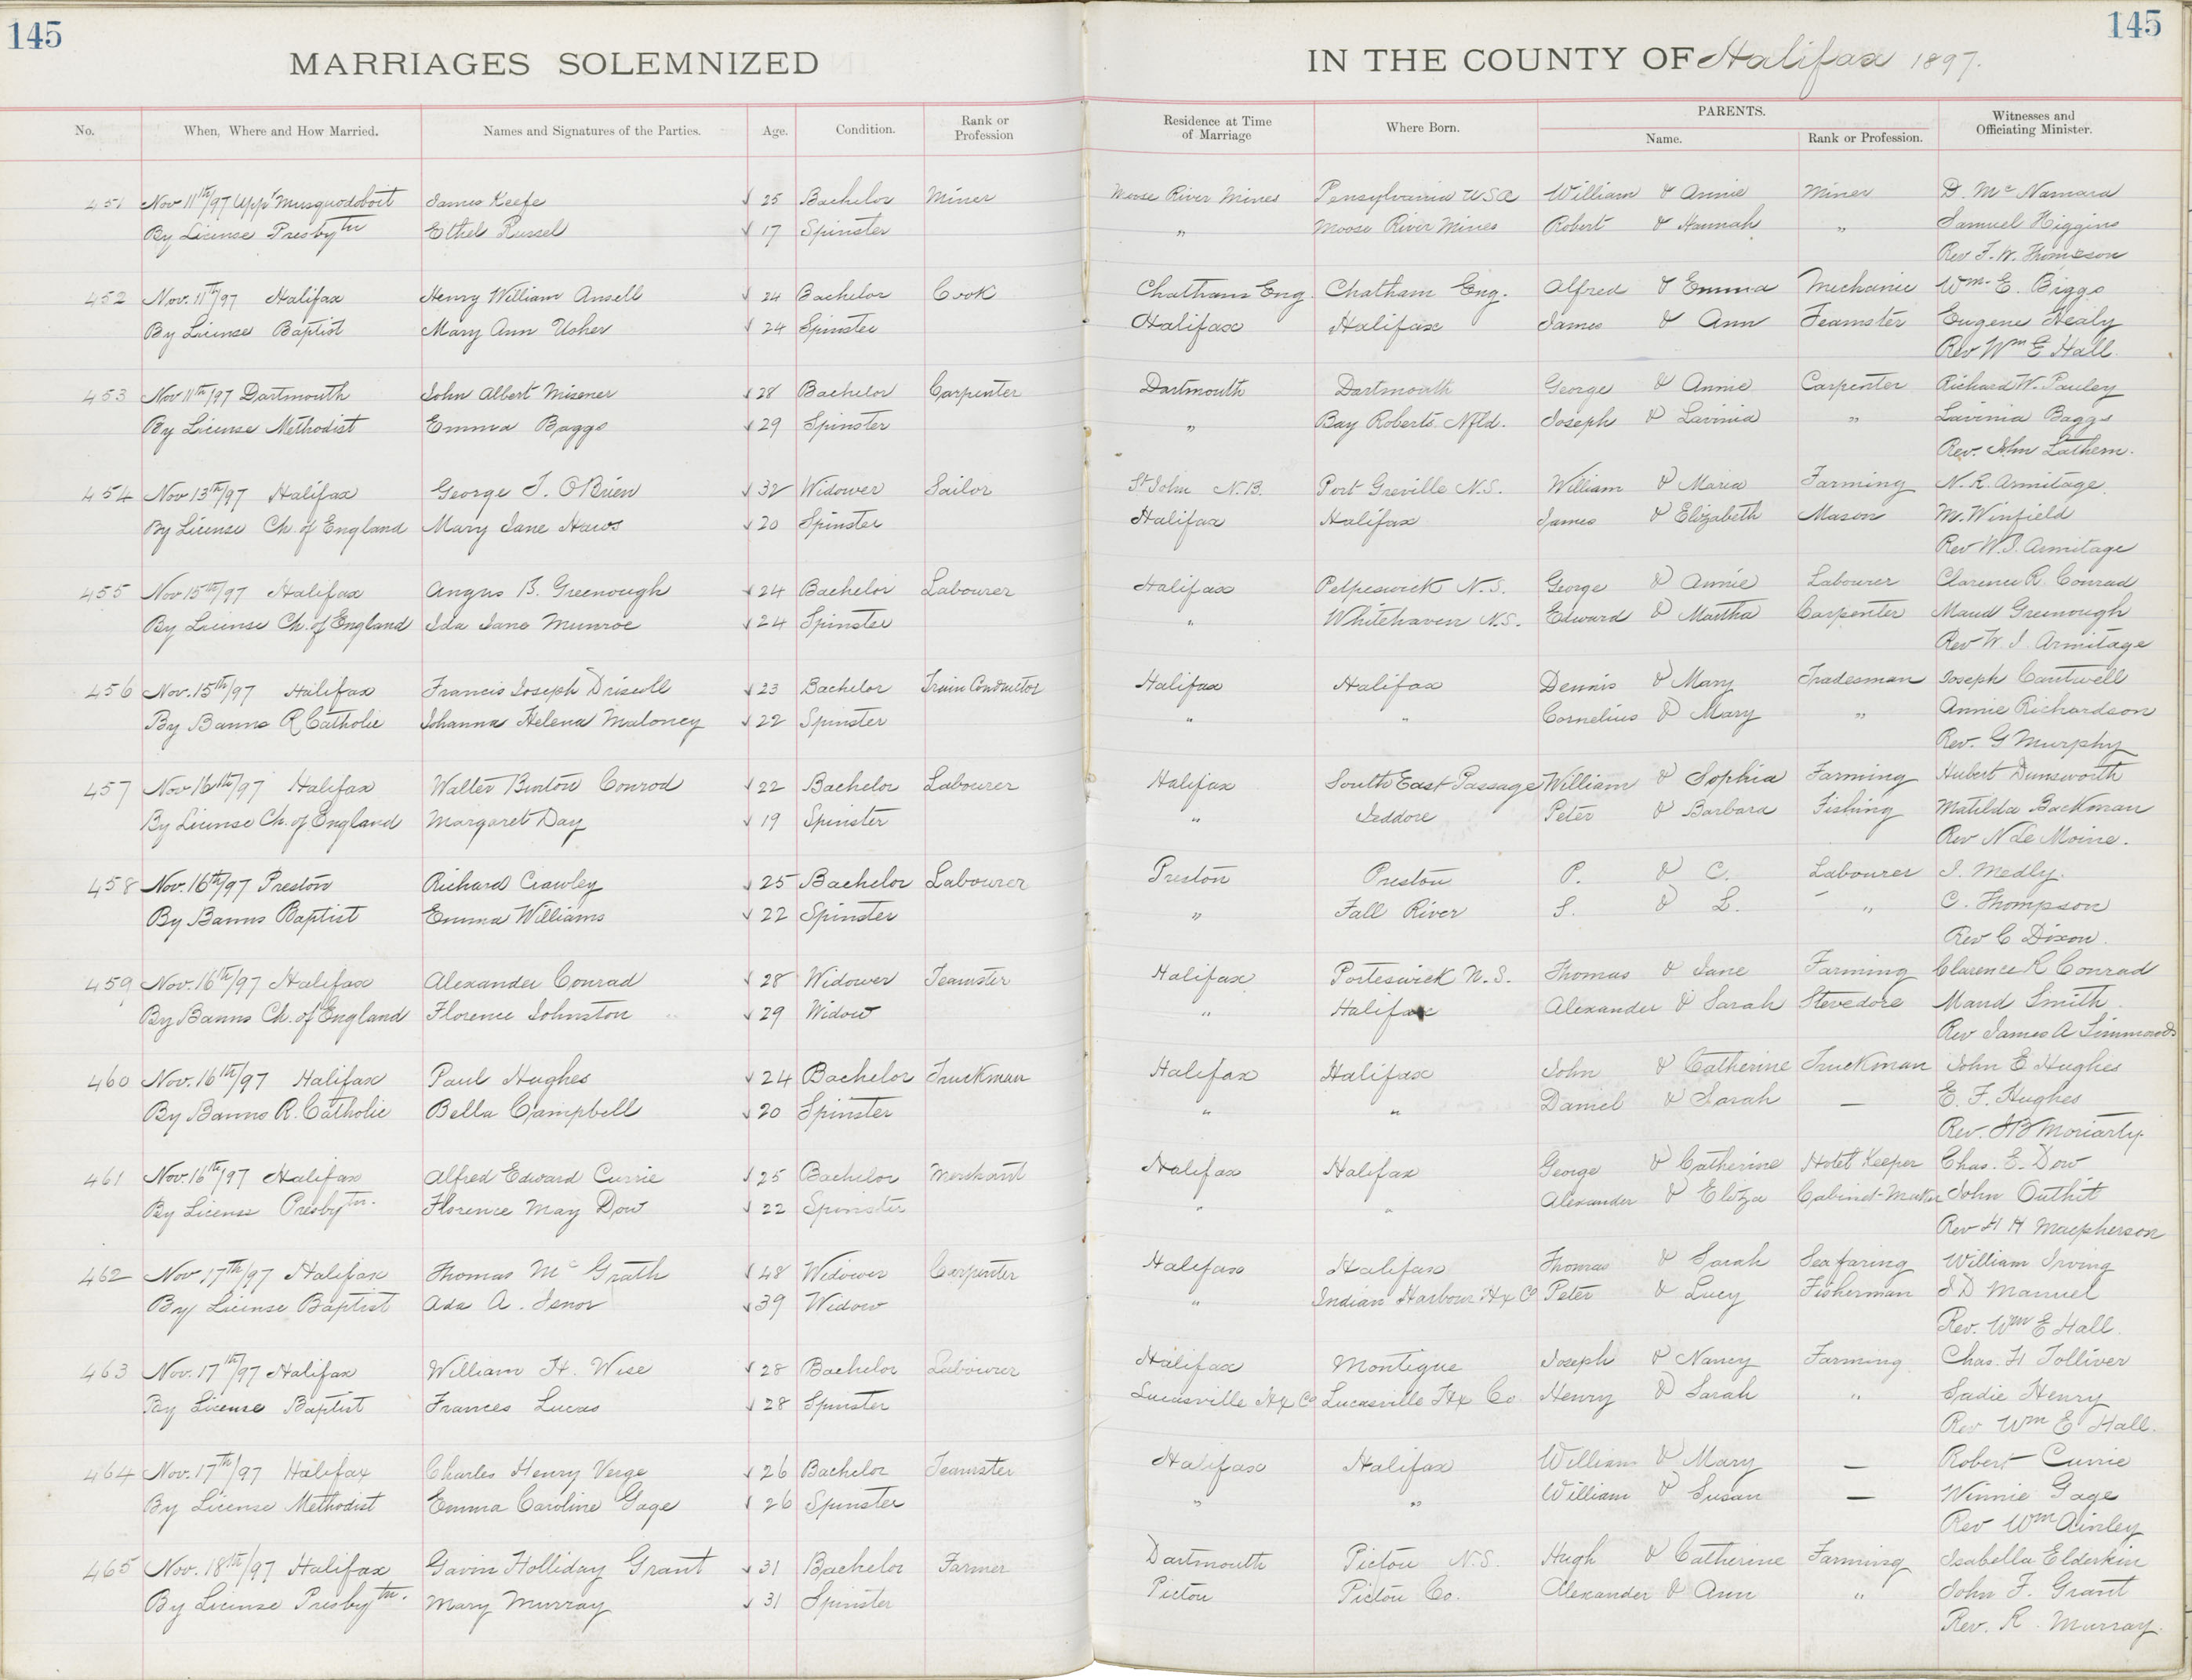 145 145
MARRIAGES SOLEMNIZED IN THE COUNTY OF Halifax 1897.
No. When, Where and How Married. Names and Signatures of the Parties. Age. Condition. Rank or Profession Residence at Time of Marriage Where Born. PARENTS. Name. Rank or Profession. Witnesses and Officiating Minister.
451 Nov 11th/97 Uppr Musquodoboit James Keefe √ 25 Bachelor Miner Moose River Mines Pensylvania USA William & Annie Miner D. Mc Namara
By License Presbytn Ethel Russel √ 17 Spinster " Moose River Mines Robert & Hannah " Samuel Higgins
Rev F. W. Thompson
452 Nov. 11th/97 Halifax Henry William Ansell √ 24 Bachelor Cook Chatham Eng. Chatham Eng. Alfred & Emma Mechanic Wm. E. Biggs
By License Baptist Mary Ann Usher √ 24 Spinster Halifax Halifax James & Ann Teamster Eugene Healy
Rev Wm E Hall.
453 Nov 11th/97 Dartmouth John Albert Misener √ 28 Bachelor Carpenter Dartmouth Dartmouth George & Annie Carpenter Richard W. Pauley
By License Methodist Emma Baggs √ 29 Spinster " Bay Roberts. Nfld. Joseph & Lavinia " Lavinia Baggs
Rev. John Lathern.
454 Nov 13th/97 Halifax George T. O'Brien √ 32 Widower Sailor St John N.B. Port Greville N.S. William & Maria Farming N. R. Armitage
By License Ch. of England Mary Jane Haws √ 20 Spinster Halifax Halifax James & Elizabeth Mason M. Winfield
Rev W. J. Armitage
455 Nov 15th/97 Halifax Angus B. Greenough √ 24 Bachelor Labourer Halifax Petpeswick N.S. George & Annie Labourer Clarence R. Conrad
By License Ch. of England Ida Jane Munroe √ 24 Spinster " Whitehaven N.S. Edward & Martha Carpenter Maud Greenough
Rev W. J. Armitage
456 Nov. 15th/97 Halifax Francis Joseph Driscoll √ 23 Bachelor Train Conductor Halifax Halifax Dennis & Mary Tradesman Joseph Cantwell
By Banns R Catholic Johanna Helena Maloney √ 22 Spinster " " Cornelius & Mary " Annie Richardson
Rev. G Murphy
457 Nov 16th/97 Halifax Walter Benton Conrod √ 22 Bachelor Labourer Halifax South East Passage William & Sophia Farming Hubert Dunsworth
By License Ch. of England Margaret Day √ 19 Spinster " Jeddore Peter & Barbara Fishing Matilda Backman
Rev N Le Moine.
458 Nov. 16th/97 Preston Richard Crawley √ 25 Bachelor Labourer Preston Preston P. & C. Labourer J. Medly.
By Banns Baptist Emma Williams √ 22 Spinster " Fall River S. & L. " C. Thompson
Rev C Dixon.
459 Nov. 16th/97 Halifax Alexander Conrad √ 28 Widower Teamster Halifax Porteswick N.S. Thomas & Jane Farming Clarence R Conrad
By Banns Ch. of England Florence Johnston √ 29 Widow " Halifax Alexander & Sarah Stevedore Maud Smith
Rev James A Simmonds
460 Nov. 16th/97 Halifax Paul Hughes √ 24 Bachelor Truckman Halifax Halifax John & Catherine Truckman John E Hughes
By Banns R. Catholic Bella Campbell √ 20 Spinster " " Daniel & Sarah — E. F. Hughes
Rev. J B Moriarty.
461 Nov. 16th/97 Halifax Alfred Edward Currie √ 25 Bachelor Merchant Halifax Halifax George & Catherine Hotel Keeper Chas. E. Dow
By License Presbytn. Florence May Dow √ 22 Spinster " " Alexander & Eliza Cabinet-Maker John Outhit
Rev H H Macpherson
462 Nov 17th/97 Halifax Thomas Mc Grath √ 48 Widower Carpenter Halifax Halifax Thomas & Sarah Seafaring William Irving
By License Baptist Ada A. Jenor √ 39 Widow " Indian Harbour Hx Co Peter & Lucy Fisherman J D Manuel
Rev. Wm E Hall.
463 Nov. 17th/97 Halifax William H. Wise √ 28 Bachelor Labourer Halifax Montigue Joseph & Nancy Farming Chas. H Tolliver
By License Baptist Frances Lucas √ 28 Spinster Lucasville Hx Co Lucasville Hx Co. Henry & Sarah " Sadie Henry
Rev Wm E Hall.
464 Nov. 17th/97 Halifax Charles Henry Verge √ 26 Bachelor Teamster Halifax Halifax William & Mary — Robert Currie
By License Methodist Emma Caroline Gage √ 26 Spinster " " William & Susan — Winnie Gage
Rev Wm Ainley
465 Nov. 18th/97 Halifax Gavin Holliday Grant √ 31 Bachelor Farmer Dartmouth Pictou N.S. Hugh & Catherine Farming Isabella Elderkin
By License Presbytn. Mary Murray √ 31 Spinster Pictou Pictou Co. Alexander & Ann " John F. Grant
Rev. R. Murray.